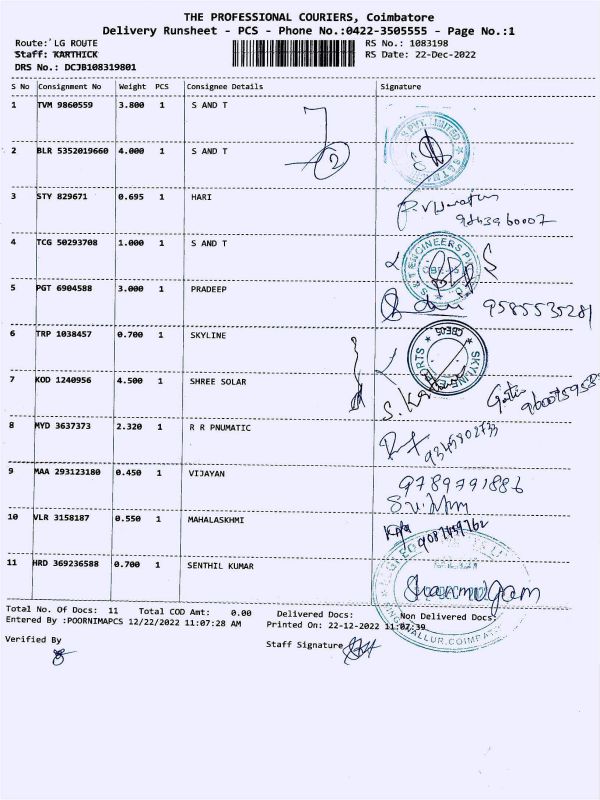 THE PROFESSIONAL COURIERS, Coimbatore
Delivery Runsheet - PCS - Phone No.:0422-3505555 - Page No.:1
Route: LG ROUTE RS No.: 1083198
Staff: KARTHICK RS Date: 22-Dec-2022
DRS No.: DCJB108319801
S No Consignment No Weight PCS Consignee Details Signature
1 TVM 9860559 3.800 1 S AND T
2 BLR 5352019660 4.000 1 S AND T
2
3 STY 829671 0.695 1 HARI
4 TCG 50293708 1.000 1 S AND T
5 PGT 6904588 3.000 1 PRADEEP
9585535281
6 TRP 1038457 0.700 1 SKYLINE
SKYLINE
7 KOD 1240956 4.500 1 SHREE SOLAR
8 MYD 3637373 2.320 1 R R PNUMATIC
9 MAA 293123180 0.450 1 VIJAYAN
9789791886
10 VLR 3158187 0.550 1 MAHALASKHMI
11 HRD 369236588 0.700 1 SENTHIL KUMAR
Total No. Of Docs: 11 Total COD Amt: 0.00 Delivered Docs: Non Delivered Docs:
Entered By :POORNIMAPCS 12/22/2022 11:07:28 AM Printed On: 22-12-2022 11:07:39
Verified By Staff Signature